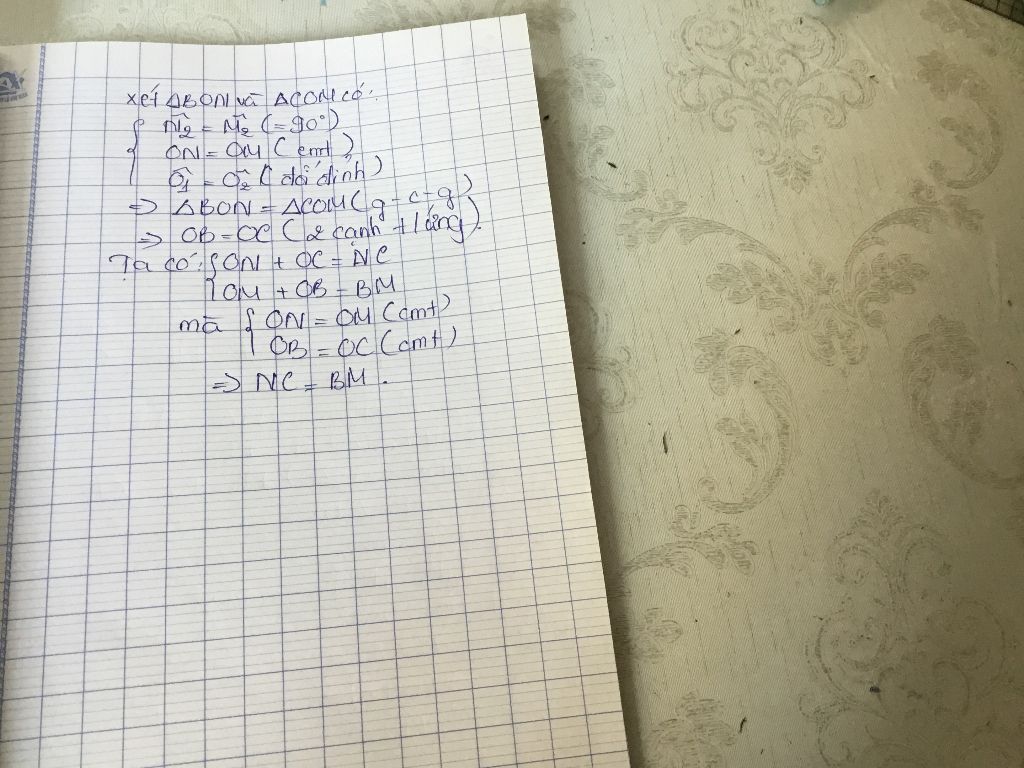 Xét ΔBON và ΔCOM có:
{ N̂₂ = M̂₂ (= 90°)
ON = OM (cmt)
Ô₁ = Ô₂ (đối đỉnh)
=> ΔBON = ΔCOM (g-c-g)
=> OB = OC (2 cạnh t/ứng).
Ta có: { ON + OC = NC
OM + OB = BM
mà { ON = OM (cmt)
OB = OC (cmt)
=> NC = BM.